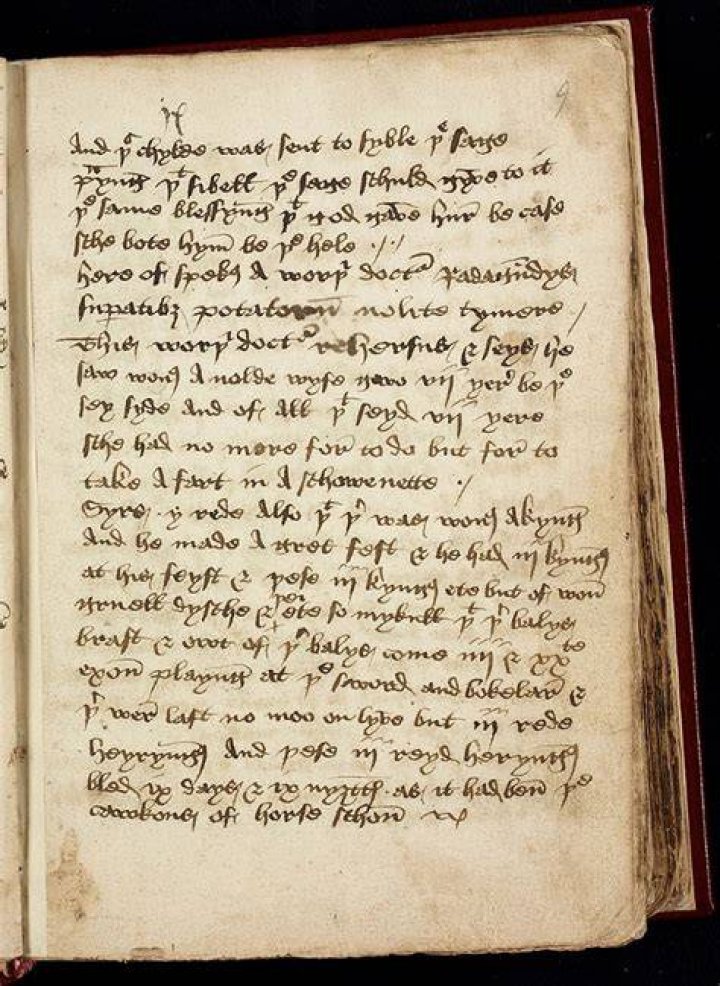 ix
9
And þe chylde was sent to syble þe sage
þt sibell þe sage schuld gyve to it
þe same blessyng þt god gave hur be case
sche bote hym be þe hele
here of spekes A worþi doctr
supatibus potatorum nolite tymere
This worþi doctr rehersus & seys he
saw wons A nolde wyfe sew vii yere be þe
sey syde And of All þt seyd vii yere
sche had no more for to do but for to
take A fart in A schowenette
Syrs y rede Also þt þr was wons A kyng
And he made A gret fest & he had iii kynges
at his feyst & þese iii kynges ete but of won
gruell dysche & þei ete so mykull þt þr balys
brast & owt of þr balys come iiii & xxte
oxon playng at þe sword and bokelar &
þr wer laft no moo on lyve but iii rede
heryngs And þese iii reyd heryngs
bled ix days & ix nyȝtts as it had ben þe
cawkons of horse schon